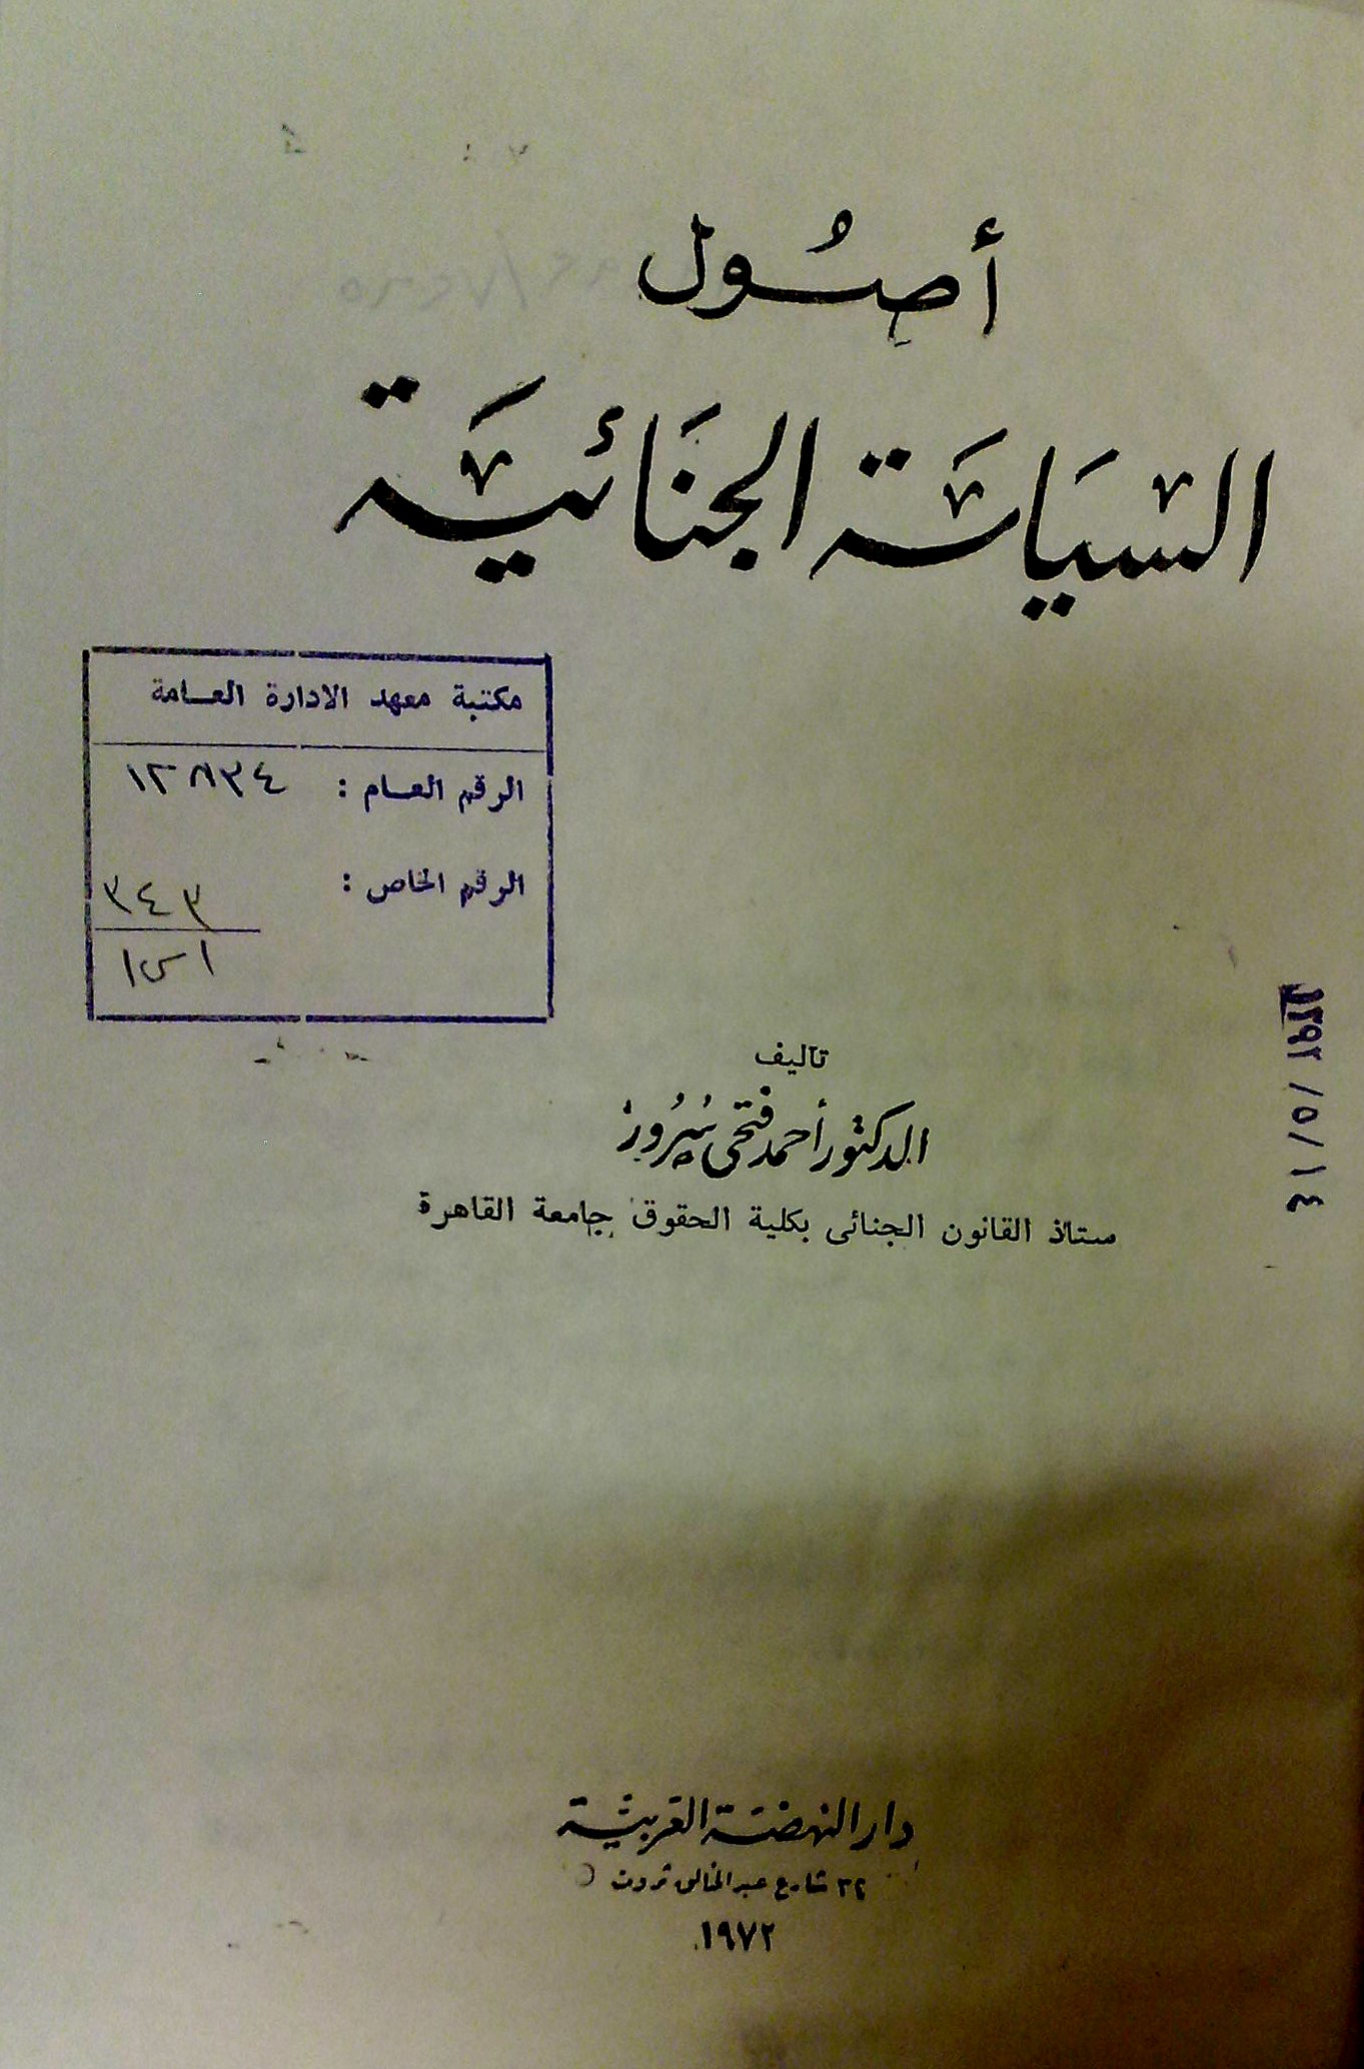 أصُول
السيَاسَة الجنَائيَّة
مكتبة معهد الادارة العامة
الرقم العام : ١٢٨٣٤
الرقم الخاص :
٣٤٣
اس١
تأليف
الدكتور أحمد فتحى سُرُور
ستاذ القانون الجنائى بكلية الحقوق جامعة القاهرة
١٣٩٢ / ٥ / ١٤
دار النهضة العربية
٣٢ شارع عبد الخالق ثروت
١٩٧٢